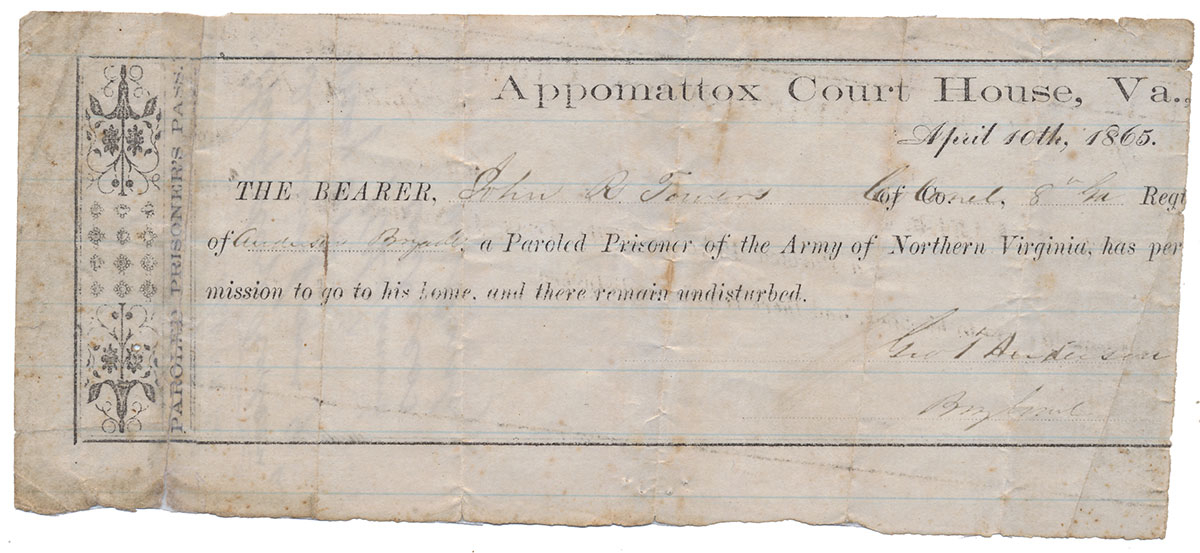 PAROLED PRISONER'S PASS
Appomattox Court House, Va.,
April 10th, 1865.
THE BEARER, John R. Towers Of Co. Colonel, 8th Ga Regt
of Anderson Brigade, a Paroled Prisoner of the Army of Northern Virginia, has per
mission to go to his home, and there remain undisturbed.
Geo T Anderson
Brig Genl